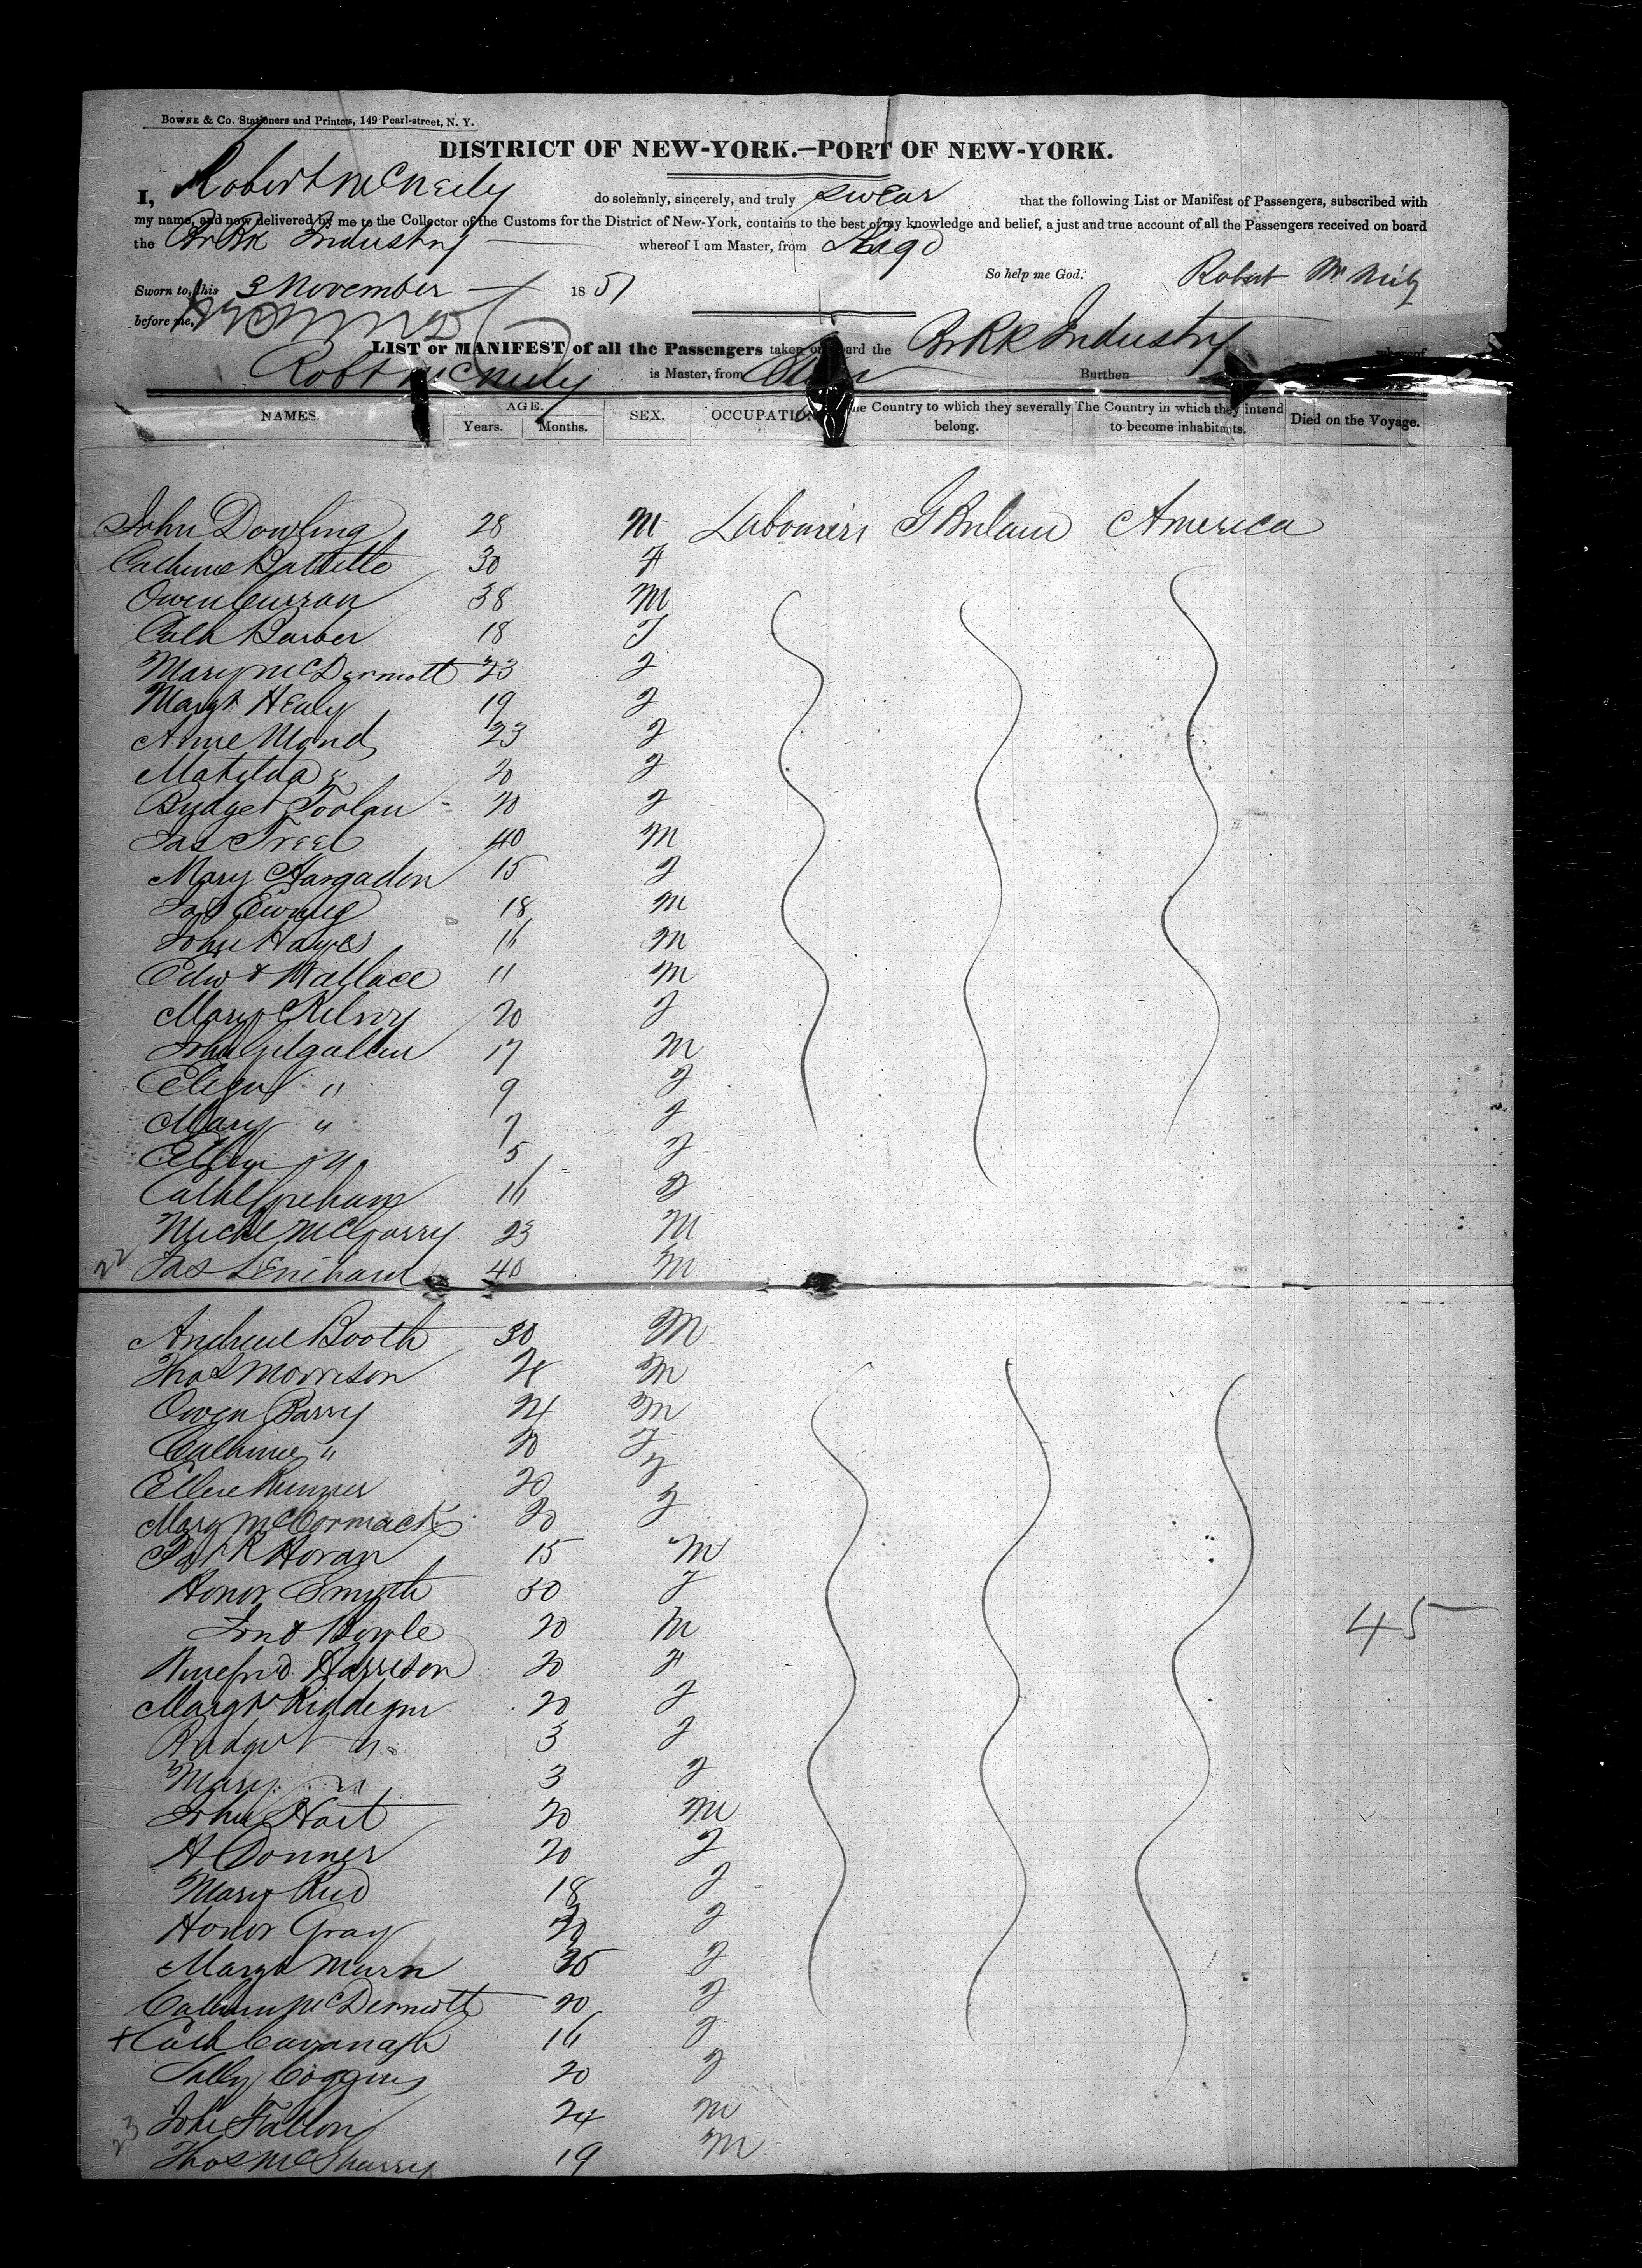 BOWNE & Co. Stationers and Printers, 149 Pearl-street, N. Y.
DISTRICT OF NEW-YORK.—PORT OF NEW-YORK.
I, Robert McNeily do solemnly, sincerely, and truly swear that the following List or Manifest of Passengers, subscribed with
my name, and now delivered by me to the Collector of the Customs for the District of New-York, contains to the best of my knowledge and belief, a just and true account of all the Passengers received on board
the Br Bk Industry whereof I am Master, from Sligo
So help me God. Robert McNeily
Sworn to, this 3 November 1851
before me,
LIST or MANIFEST of all the Passengers taken on board the Br Bk Industry whereof
Robt McNeily is Master, from Burthen
NAMES. AGE. SEX. OCCUPATION The Country to which they severally belong. The Country in which they intend to become inhabitants. Died on the Voyage.
Years. Months.
John Dowling 28 M Labourers G Britain America
Catherine Battle 30 F
Owen Curran 38 M
Cath Barber 18 F
Mary McDermott 23 F
Margt Healy 19 F
Anne Mond 23 F
Matilda 20 F
Bridget Toolan 20 F
Jas Treel 40 M
Mary Hargadon 15 F
Jas Ewing 18 M
John Hayes 16 M
Edwd Wallace 11 M
Mary Kilroy 20 F
John Gilgallen 17 M
Eliza " 9 F
Mary " 7 F
Ellen " 5 F
Cath 16 F
Michl McGarry 23 M
22 Jas Lenihan 40 M
Andrew Booth 30 M
Thos Morrison M
Owen Barry 24 M
Catherine " 20 F
Ellen 20 F
Mary McCormack 20 F
Patk Horan 15 M
Honor Smyth 50 F
Bowle 20 M
Winefrid Harrison 20 F
Margt 20 F
Bridget " 3 F
Mary " 3 F
John Hart 20 M
A Conner 20 F
Mary Reid 18 F
Honor Gray 20 F
Margt Murn F
Catherine McDermott 20 F
+ Cath Cavanagh 16 F
Sally Coggins 20 F
John Fallon 24 M
23 Thos McSharry 19 M
45